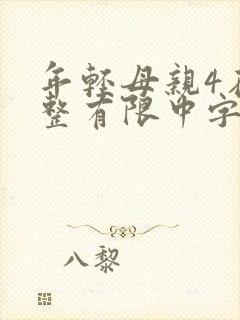 年輕母親4在
整有限中字
八黎